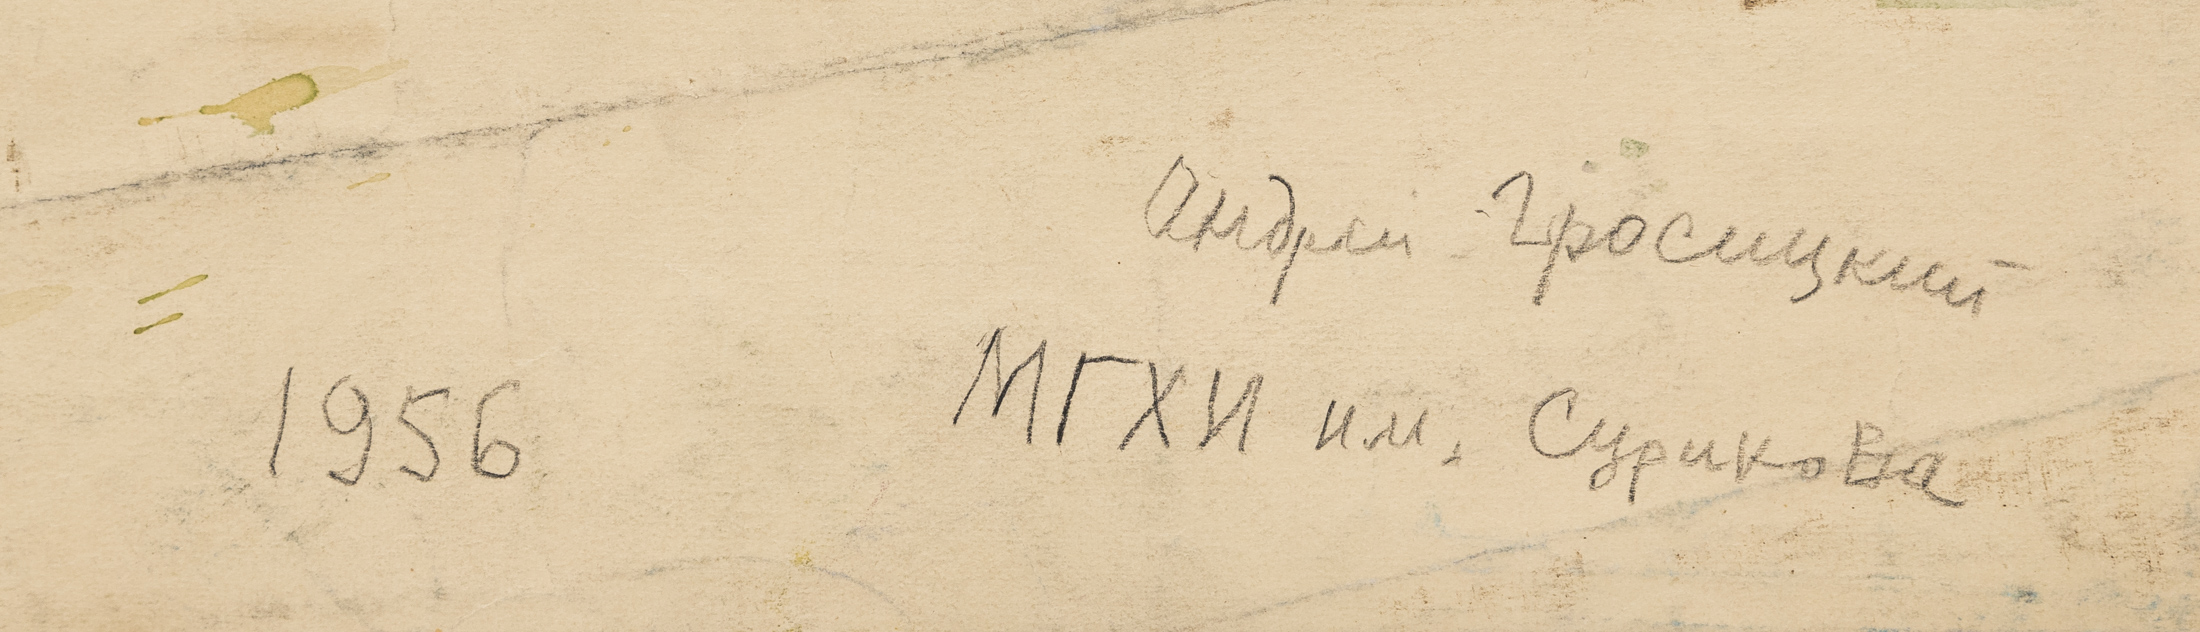 Андрей Гросицкий
1956 МГХИ им. Сурикова